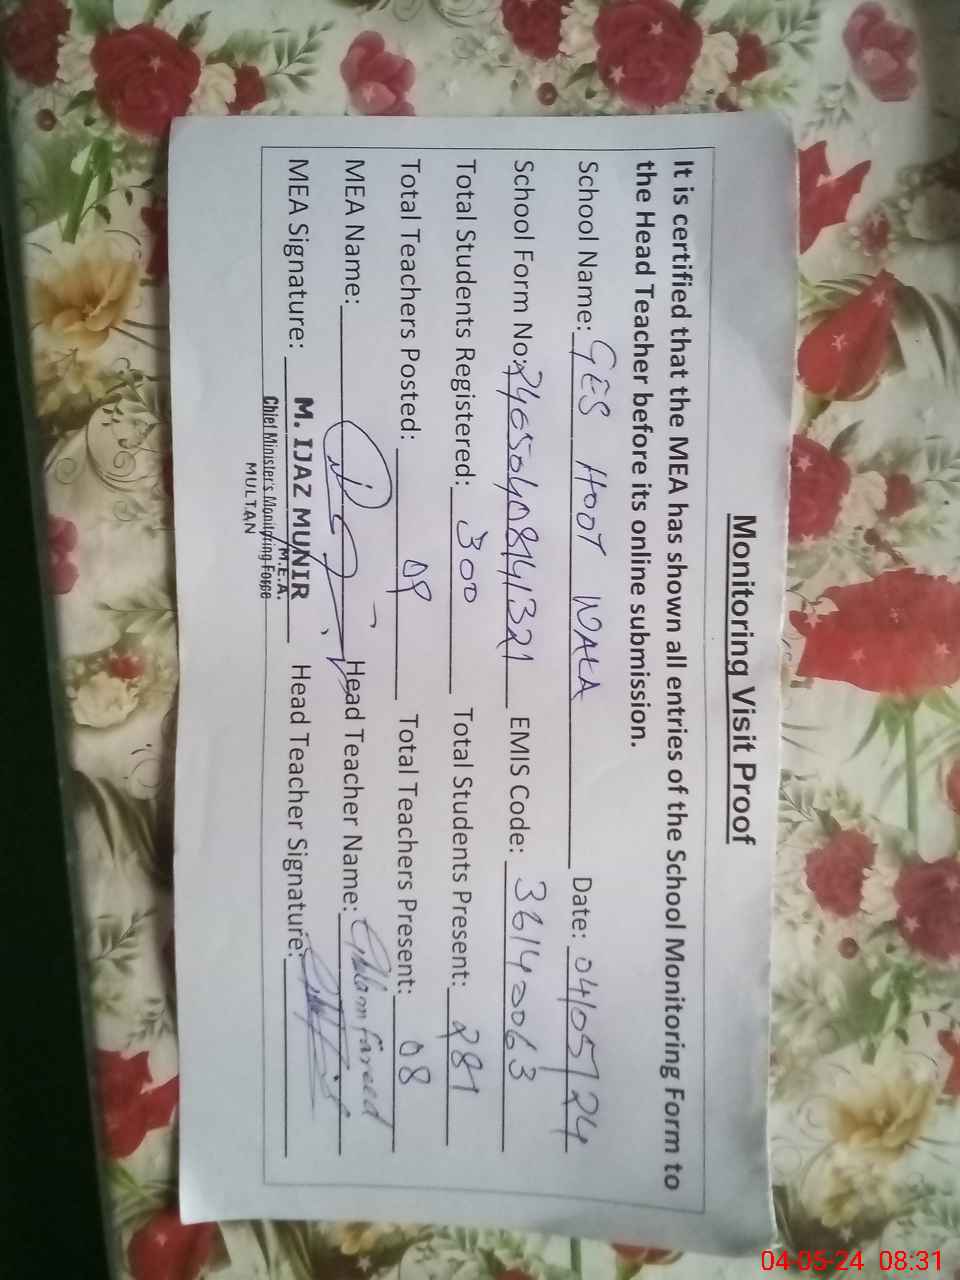 Monitoring Visit Proof
It is certified that the MEA has shown all entries of the School Monitoring Form to
the Head Teacher before its online submission.
School Name: GES HOOT WALA Date: 04/05/24
School Form No: EMIS Code: 36140063
Total Students Registered: 300 Total Students Present: 281
Total Teachers Posted: 09 Total Teachers Present: 08
MEA Name: Head Teacher Name: Ghlam fareed
MEA Signature: Head Teacher Signature:
M. IJAZ MUNIR
M.E.A.
Chief Minister's Monitoring Force
MULTAN
04-05-24 08:31